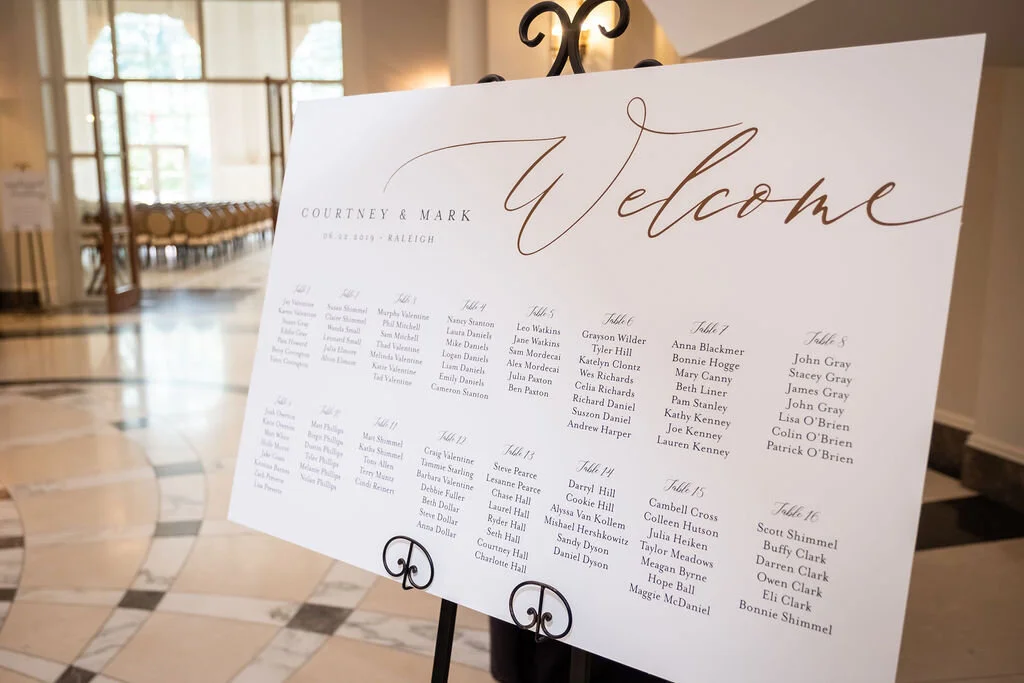 Welcome
COURTNEY & MARK
06.22.2019 - RALEIGH
Table 1
Joe Valentine
Karen Valentine
Susan Gray
Eddie Gray
Pam Howard
Barry Covington
Tracey Covington
Table 2
Susan Shimmel
Claire Shimmel
Wanda Small
Leonard Small
Julia Elmore
Table 3
Murphy Valentine
Phil Mitchell
Sam Mitchell
Thad Valentine
Melinda Valentine
Katie Valentine
Tad Valentine
Table 4
Nancy Stanton
Laura Daniels
Mike Daniels
Logan Daniels
Liam Daniels
Emily Daniels
Cameron Stanton
Table 5
Leo Watkins
Jane Watkins
Sam Mordecai
Alex Mordecai
Julia Paxton
Ben Paxton
Table 6
Grayson Wilder
Tyler Hill
Katelyn Clontz
Wes Richards
Celia Richards
Richard Daniel
Suszon Daniel
Andrew Harper
Table 7
Anna Blackmer
Bonnie Hogge
Mary Canny
Beth Liner
Pam Stanley
Kathy Kenney
Joe Kenney
Lauren Kenney
Table 8
John Gray
Stacey Gray
James Gray
John Gray
Lisa O'Brien
Colin O'Brien
Patrick O'Brien
Table 9
Josh Overton
Katie Overton
Matt White
Jake
Katrina
Zach
Lisa
Table 10
Matt Phillips
Birgit Phillips
Dustin Phillips
Tyler Phillips
Melanie Phillips
Nolan Phillips
Table 11
Matt Shimmel
Kathy Shimmel
Tony Allen
Terry Muntz
Cindi Reinert
Table 12
Craig Valentine
Tammie Starling
Barbara Valentine
Debbie Fuller
Beth Dollar
Steve Dollar
Anna Dollar
Table 13
Steve Pearce
Lesanne Pearce
Chase Hall
Laurel Hall
Ryder Hall
Seth Hall
Courtney Hall
Charlotte Hall
Table 14
Darryl Hill
Cookie Hill
Alyssa Van Kollem
Mishael Hershkowitz
Sandy Dyson
Daniel Dyson
Table 15
Cambell Cross
Colleen Hutson
Julia Heiken
Taylor Meadows
Meagan Byrne
Hope Ball
Maggie McDaniel
Table 16
Scott Shimmel
Buffy Clark
Darren Clark
Owen Clark
Eli Clark
Bonnie Shimmel